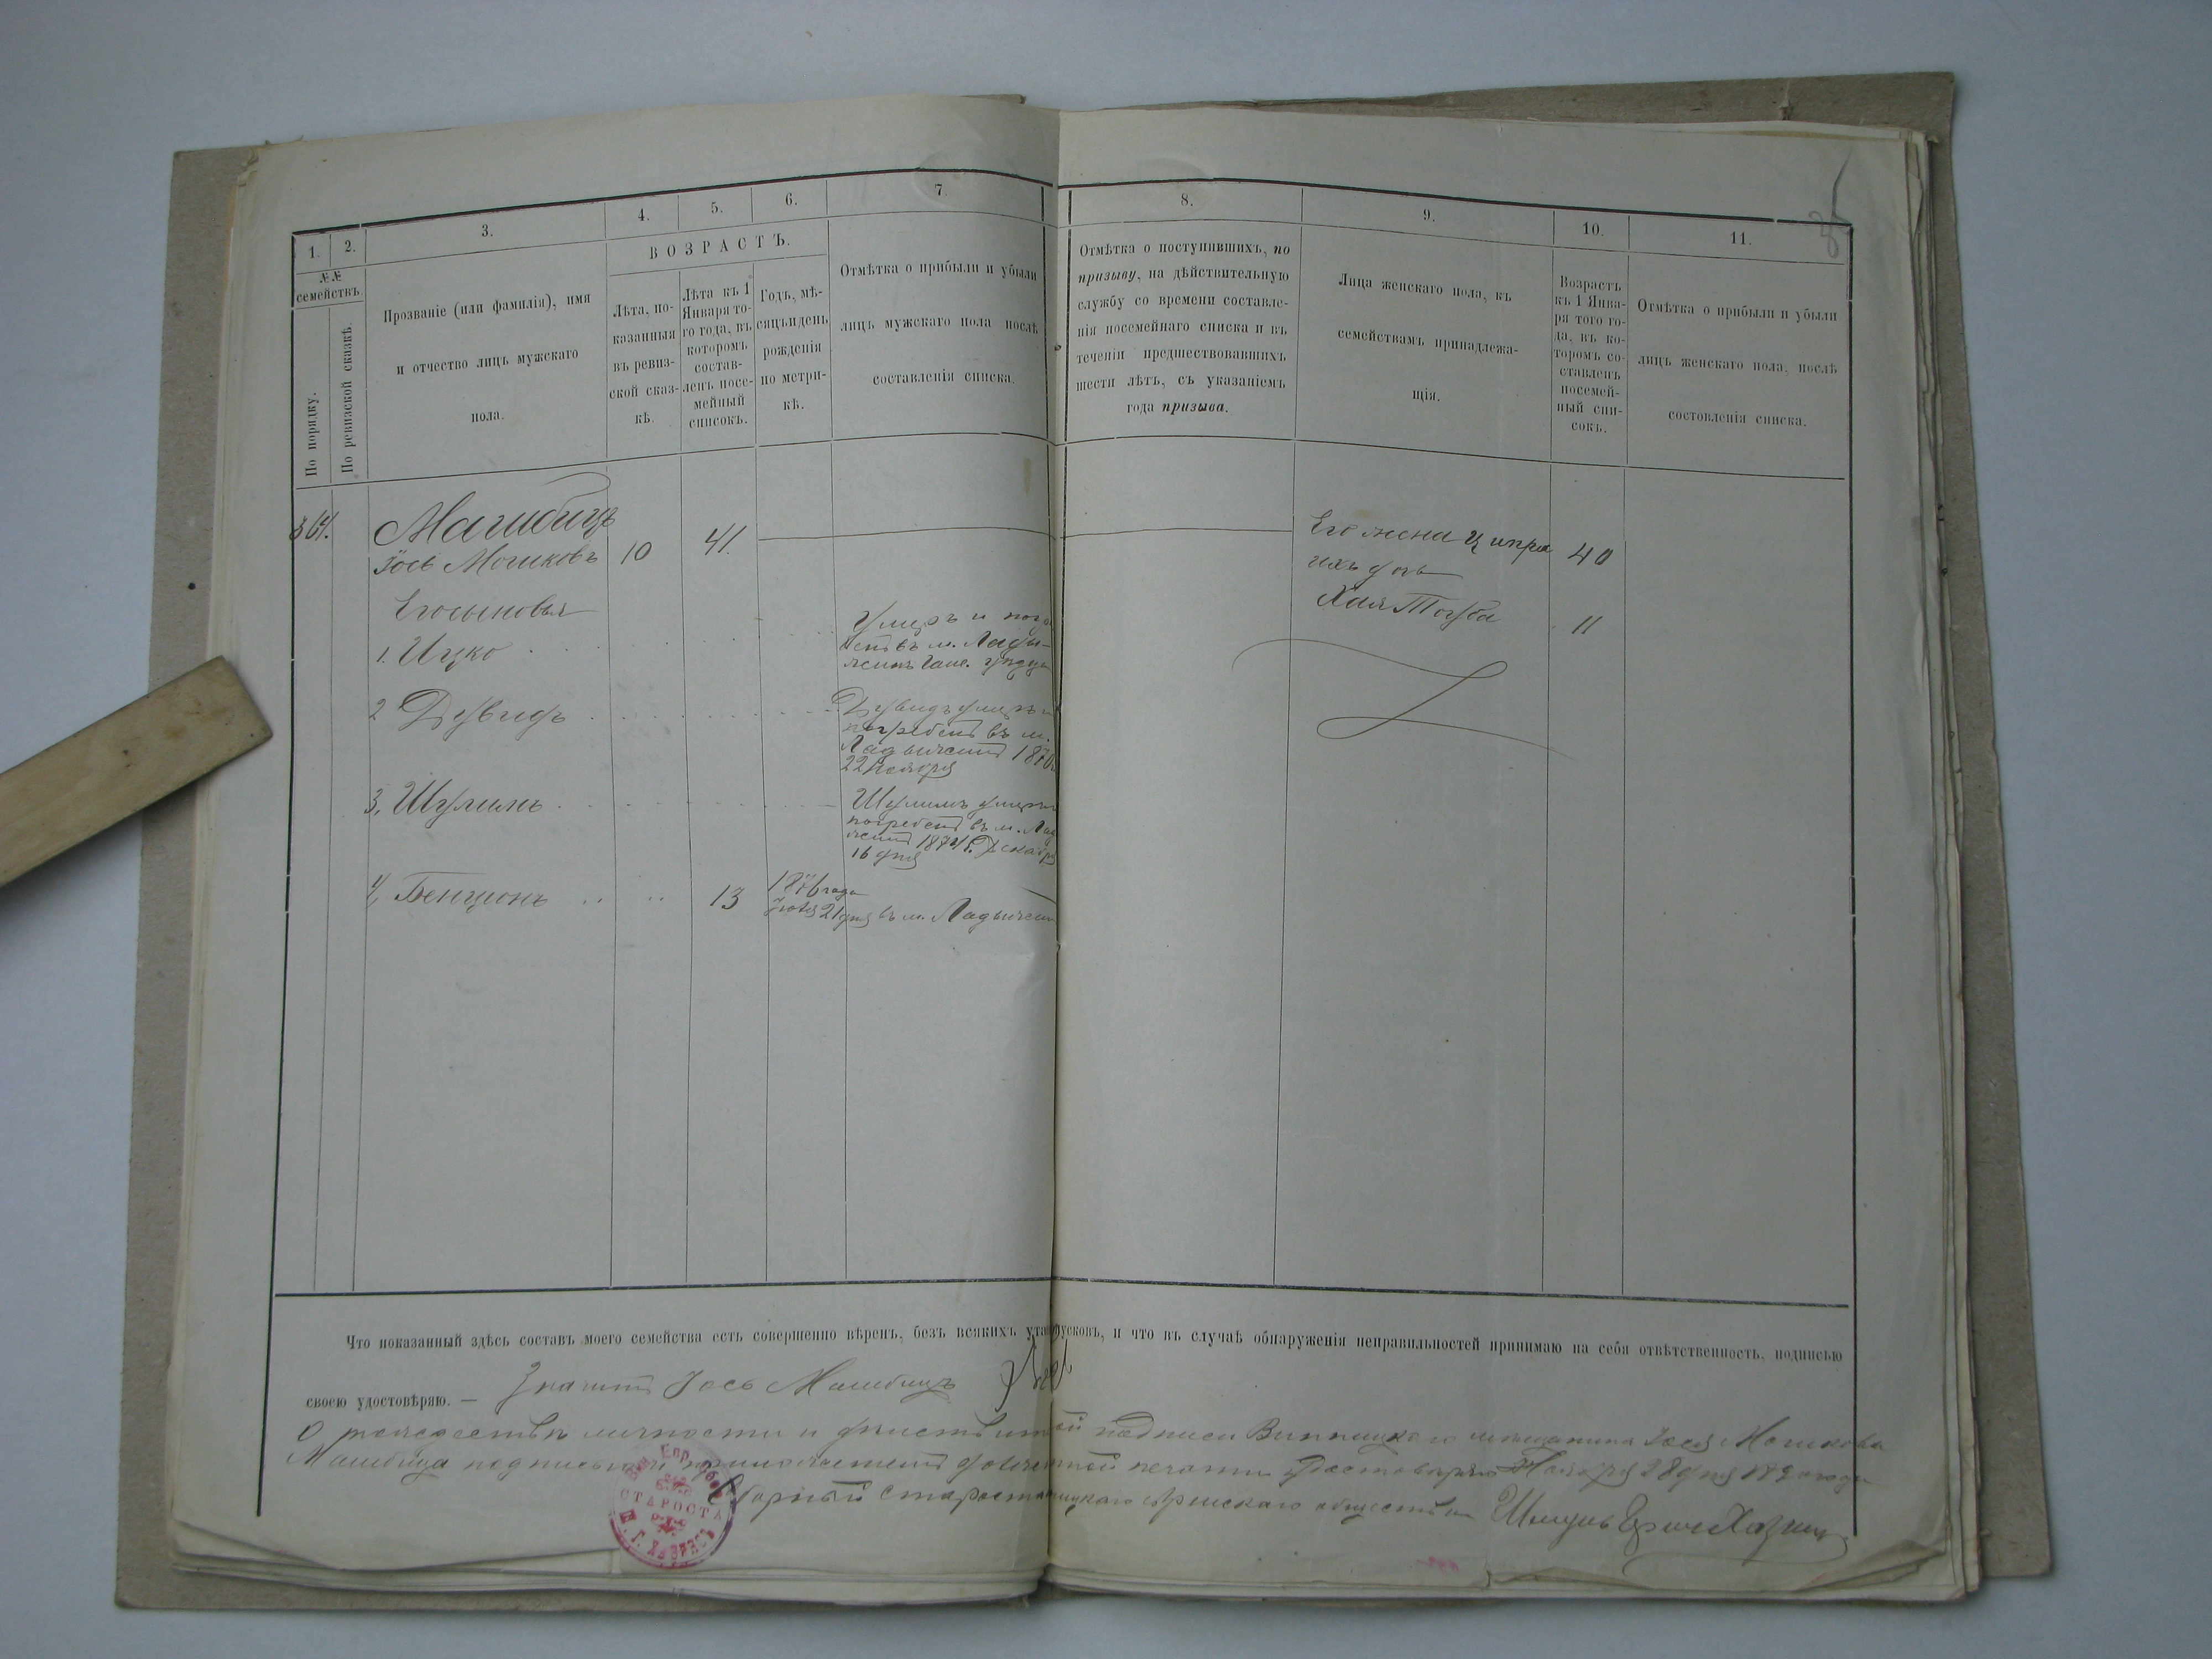 1.
2.
3.
4.
5.
6.
7.
8.
9.
10.
11.
№№
семействъ.
По порядку.
По ревизской сказкѣ.
Прозваніе (или фамилія), имя
и отчество лицъ мужскаго
пола.
ВОЗРАСТЪ.
Лѣта, по-
казанныя
въ ревиз-
ской сказ-
кѣ.
Лѣта къ 1
Января то-
го года, въ
которомъ
состав-
ленъ посе-
мейный
списокъ.
Годъ, мѣ-
сяцъ и день
рожденія
по метри-
кѣ.
Отмѣтка о прибыли и убыли
лицъ мужскаго пола послѣ
составленія списка.
Отмѣтка о поступившихъ, по
призыву, на дѣйствительную
службу со времени составле-
нія посемейнаго списка и въ
теченіи предшествовавшихъ
шести лѣтъ, съ указаніемъ
года призыва.
Лица женскаго пола, къ
семействамъ принадлежа-
щія.
Возрастъ
къ 1 Янва-
ря того го-
да, въ ко-
торомъ со-
ставленъ
посемей-
ный спи-
сокъ.
Отмѣтка о прибыли и убыли
лицъ женскаго пола, послѣ
состовленія списка.
364.
Машбицъ
Іось Мошковъ 10 41.
Его жена Ципра 40
ихъ дочь
Хая Тауба 11
Его сыновья
1. Ицко
Умеръ и погре
бенъ въ м. Лады-
жинъ Гайс. уѣзда
2 Дувидъ
Дувидъ умеръ и
погребенъ въ м.
Ладыжинѣ 1870
22 Ноября
3. Шулимъ
Шулимъ умеръ и
погребенъ въ м. Лад
жинѣ 1874 г. Декабря
16 дня
4, Бенціонъ 13 1876 года
21 дня въ м. Ладыжин
Что показанный здѣсь составъ моего семейства есть совершенно вѣренъ, безъ всякихъ пропусковъ, и что въ случаѣ обнаруженія неправильностей принимаю на себя отвѣтственность, подписью
своею удостовѣряю. — Іось Машбицъ
О тождествѣ личности и дѣйствительной подписи Винницкаго мѣщанина Іося Мошкова
Машбица подписью и приложеніемъ должностной печати удостовѣряю Ноября 28 дня года
Сборный Староста Винницкаго Еврейскаго общества
СТАРОСТА